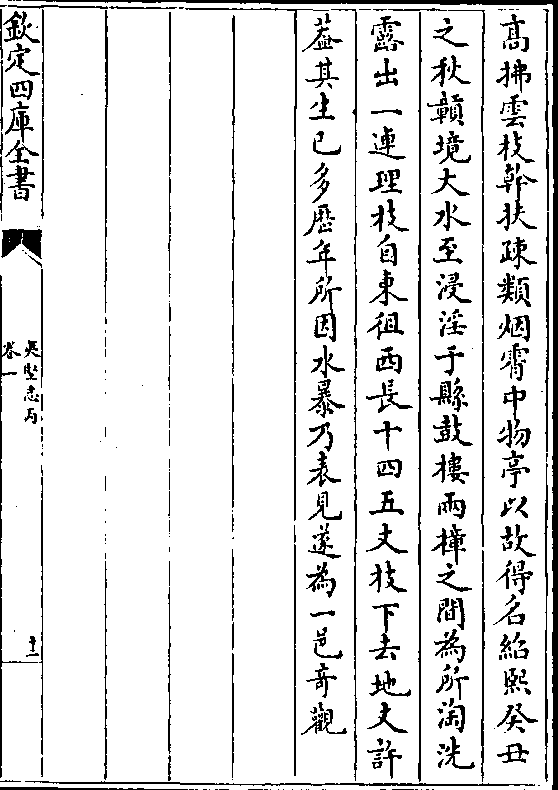 髙拂雲枝幹扶疎類烟霄中物亭以故得名紹熙癸丑
之秋贛境大水至浸淫于縣鼓樓兩撞之間為所淘洗
露出一連理枝自東徂西長十四五丈枝下去地丈許
葢其生已多歴年所因水暴乃表見遂為一邑奇觀
欽定四庫全書
夷堅志丙
卷一
十二